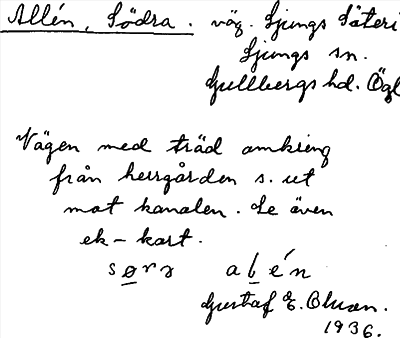 Allén, Södra. väg. Ljungs Säteri
Ljungs sn.
Gullbergs hd. Ögl
Vägen med träd omkring
från herrgården s. ut
mot kanalen. Se även
ek-kart.
sørɂ alén
Gustaf E.
1936.